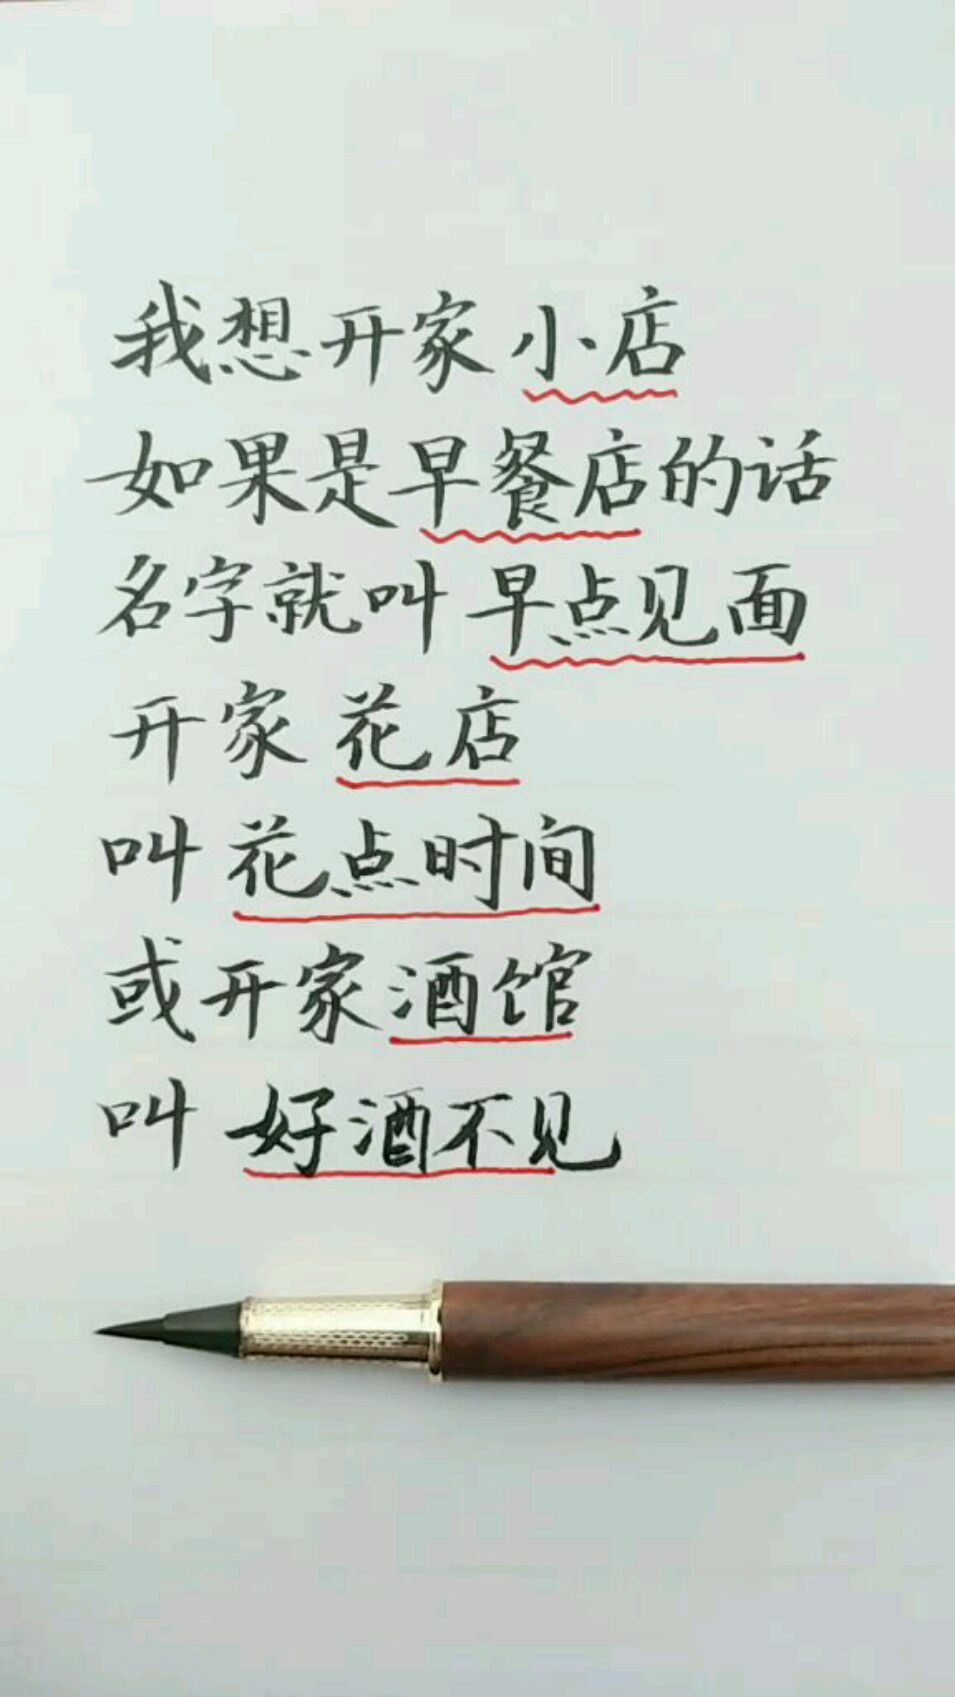 我想开家小店
如果是早餐店的话
名字就叫早点见面
开家花店
叫花点时间
或开家酒馆
叫好酒不见